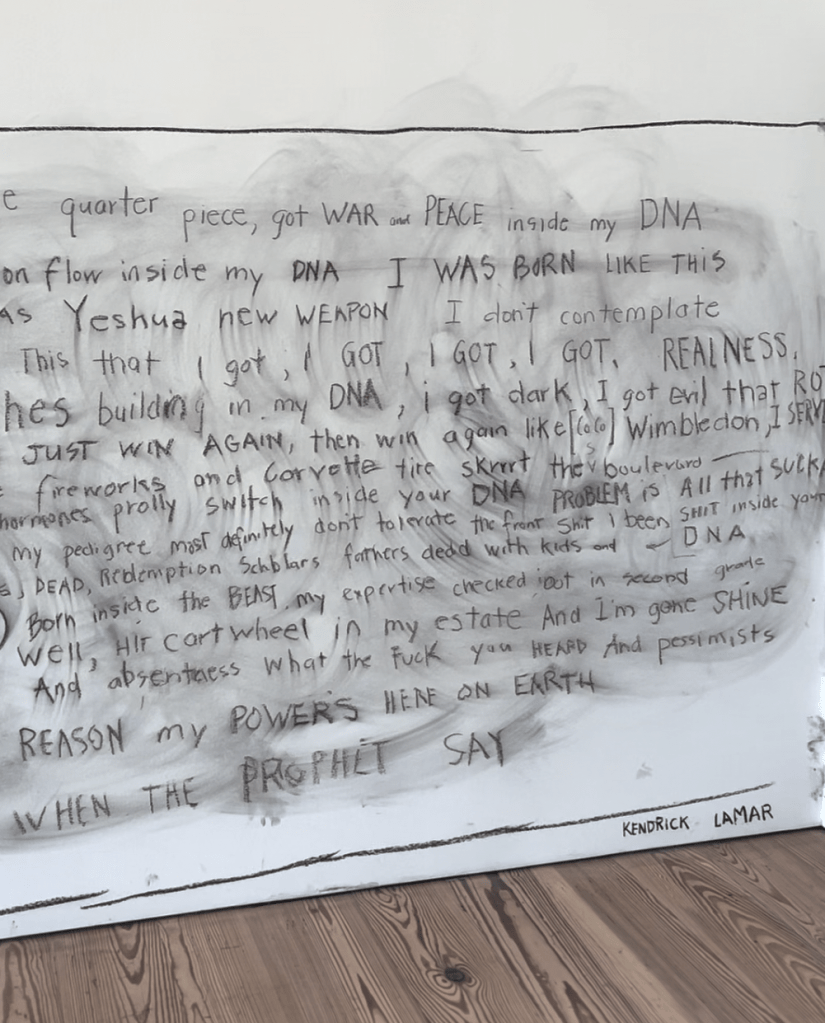 e quarter piece, got WAR and PEACE inside my DNA
on flow inside my DNA I WAS BORN LIKE THIS
AS Yeshua new WEAPON I don't contemplate
This that I got, I GOT, I GOT, I GOT, REALNESS,
hes building in my DNA, i got dark, I got evil that ROT
JUST WIN AGAIN, then win again like [ ] Wimbledon, I SERV
fireworks and Corvette tire skrrrt the boulevard
hormones prolly switch inside your DNA PROBLEM is All that SUCK
my pedigree most definitely don't tolerate the front Shit I been SHIT inside your
DEAD, Redemption Scholars fathers dead with kids and DNA
Born inside the BEAST, my expertise checked out in second grade
Well, Hit cartwheel in my estate And I'm gone SHINE
And absentness what the Fuck you HEARD And pessimists
REASON my POWERS HERE ON EARTH
WHEN THE PROPHET SAY
KENDRICK LAMAR